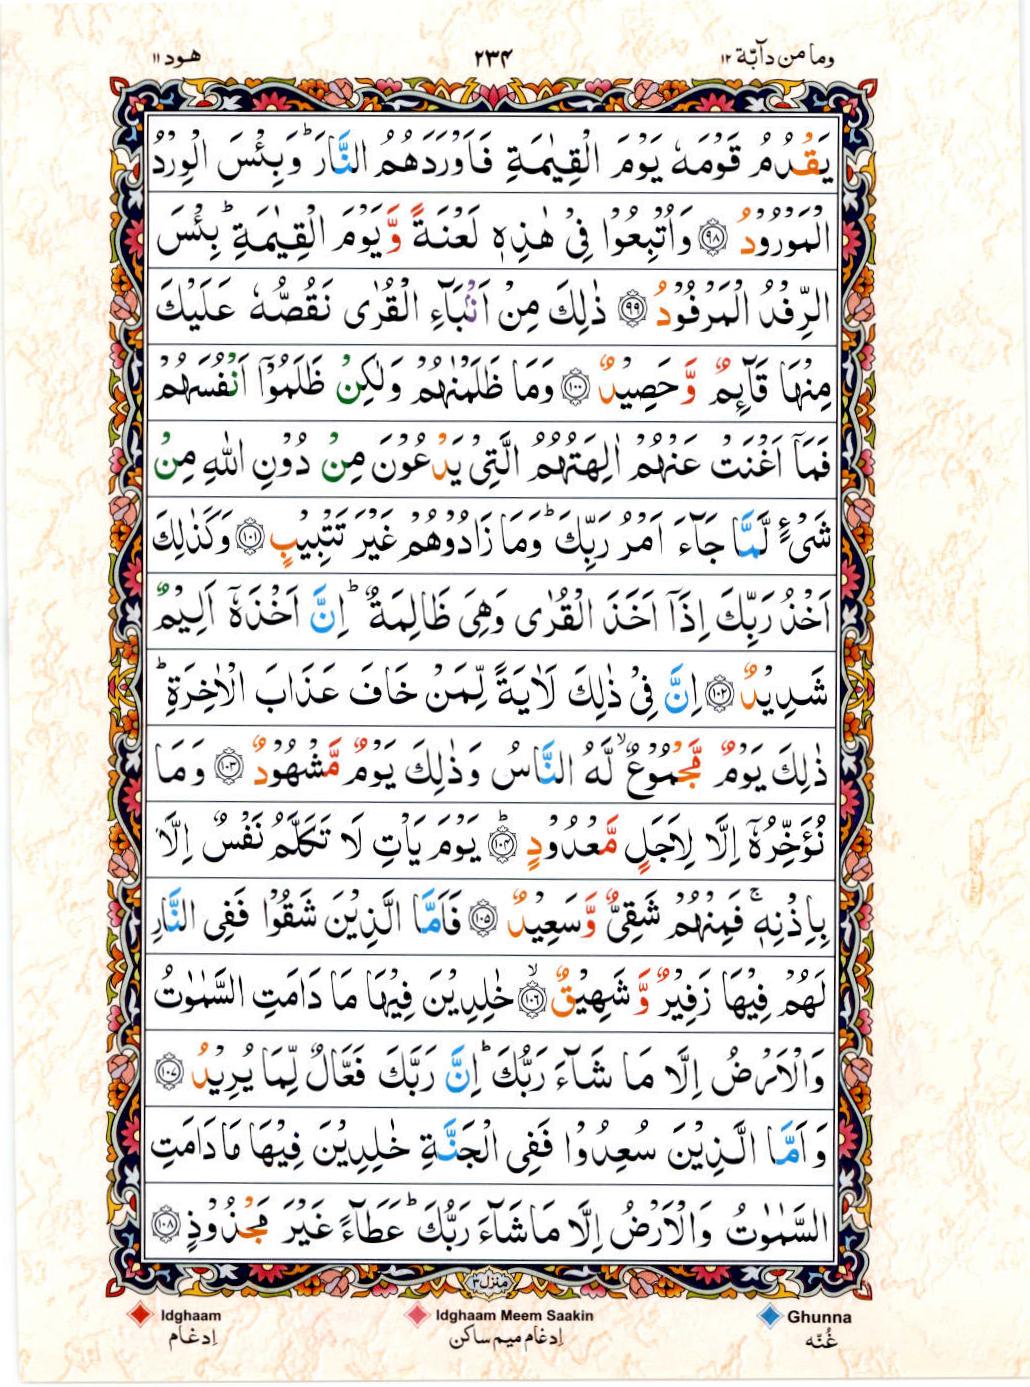 وما من دآبّة ١٢
٢٣٤
هود ١١
يَقْدُمُ قَوْمَهٗ يَوْمَ الْقِيٰمَةِ فَاَوْرَدَهُمُ النَّارَ ؕ وَبِئْسَ الْوِرْدُ
الْمَوْرُوْدُ ﴿۹۸﴾ وَاُتْبِعُوْا فِىْ هٰذِهٖ لَعْنَةً وَّيَوْمَ الْقِيٰمَةِ ؕ بِئْسَ
الرِّفْدُ الْمَرْفُوْدُ ﴿۹۹﴾ ذٰلِكَ مِنْ اَنْۢبَآءِ الْقُرٰى نَقُصُّهٗ عَلَيْكَ
مِنْهَا قَآئِمٌ وَّحَصِيْدٌ ﴿۱۰۰﴾ وَمَا ظَلَمْنٰهُمْ وَلٰكِنْ ظَلَمُوْۤا اَنْفُسَهُمْ
فَمَاۤ اَغْنَتْ عَنْهُمْ اٰلِهَتُهُمُ الَّتِىْ يَدْعُوْنَ مِنْ دُوْنِ اللّٰهِ مِنْ
شَىْءٍ لَّمَّا جَآءَ اَمْرُ رَبِّكَ ؕ وَمَا زَادُوْهُمْ غَيْرَ تَتْبِيْبٍ ﴿۱۰۱﴾ وَكَذٰلِكَ
اَخْذُ رَبِّكَ اِذَاۤ اَخَذَ الْقُرٰى وَهِىَ ظَالِمَةٌ ؕ اِنَّ اَخْذَهٗۤ اَلِيْمٌ
شَدِيْدٌ ﴿۱۰۲﴾ اِنَّ فِىْ ذٰلِكَ لَاٰيَةً لِّمَنْ خَافَ عَذَابَ الْاٰخِرَةِ ؕ
ذٰلِكَ يَوْمٌ مَّجْمُوْعٌ ۙ لَّهُ النَّاسُ وَذٰلِكَ يَوْمٌ مَّشْهُوْدٌ ﴿۱۰۳﴾ وَمَا
نُؤَخِّرُهٗۤ اِلَّا لِاَجَلٍ مَّعْدُوْدٍ ﴿۱۰۴﴾ ؕ يَوْمَ يَاْتِ لَا تَكَلَّمُ نَفْسٌ اِلَّا
بِاِذْنِهٖ ۚ فَمِنْهُمْ شَقِىٌّ وَّسَعِيْدٌ ﴿۱۰۵﴾ فَاَمَّا الَّذِيْنَ شَقُوْا فَفِى النَّارِ
لَهُمْ فِيْهَا زَفِيْرٌ وَّشَهِيْقٌ ﴿۱۰۶﴾ ۙ خٰلِدِيْنَ فِيْهَا مَا دَامَتِ السَّمٰوٰتُ
وَالْاَرْضُ اِلَّا مَا شَآءَ رَبُّكَ ؕ اِنَّ رَبَّكَ فَعَّالٌ لِّمَا يُرِيْدُ ﴿۱۰۷﴾
وَاَمَّا الَّذِيْنَ سُعِدُوْا فَفِى الْجَنَّةِ خٰلِدِيْنَ فِيْهَا مَا دَامَتِ
السَّمٰوٰتُ وَالْاَرْضُ اِلَّا مَا شَآءَ رَبُّكَ ؕ عَطَآءً غَيْرَ مَجْذُوْذٍ ﴿۱۰۸﴾
منزل ٣
Idghaam
Idghaam Meem Saakin
Ghunna
اِدغام
اِدغام میم ساکن
غُنّه